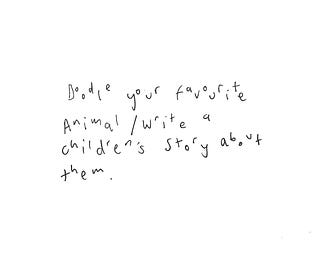 Doodle your favourite
Animal / Write a
children's story about
them.